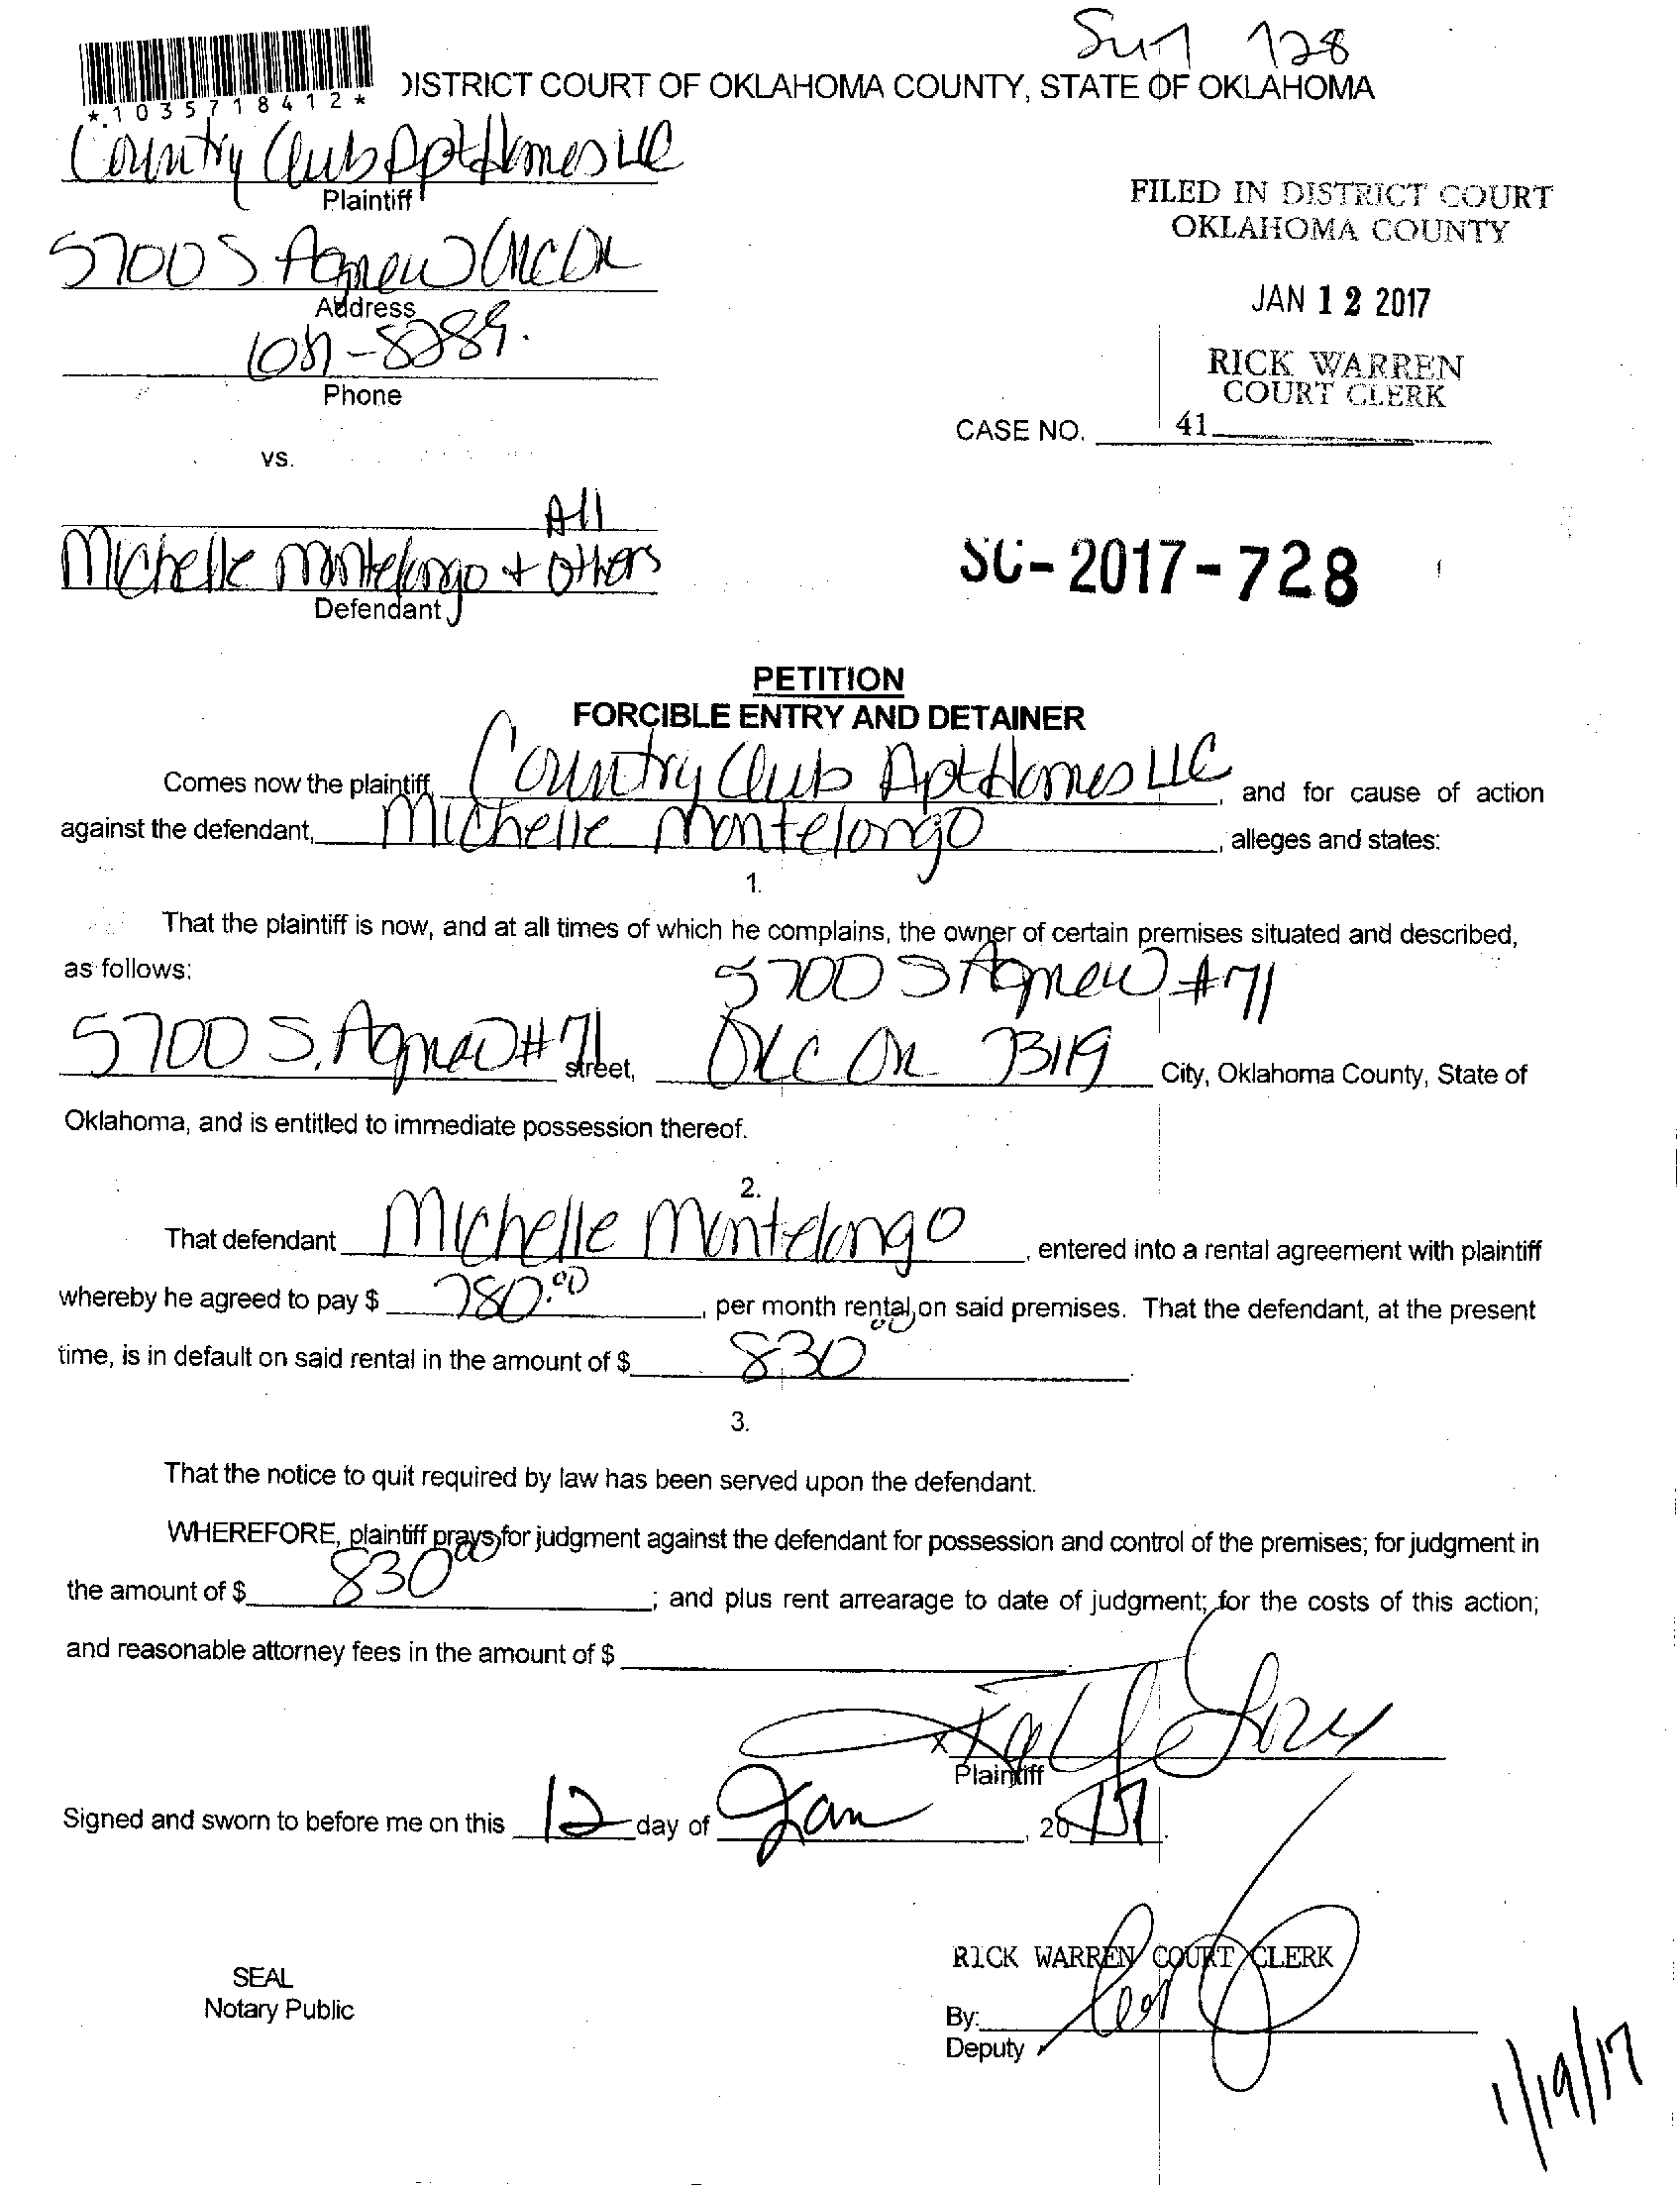 *.1035718412*
DISTRICT COURT OF OKLAHOMA COUNTY, STATE OF OKLAHOMA
Country Club Apt Homes LLC
Plaintiff
5700 S Agnew OKC OK
Address
FILED IN DISTRICT COURT
OKLAHOMA COUNTY
JAN 12 2017
RICK WARREN
COURT CLERK
-8289.
Phone
CASE NO. 41
vs.
All
Michelle Montelongo + Others
Defendant
SC-2017-728
PETITION
FORCIBLE ENTRY AND DETAINER
Comes now the plaintiff, Country Club Apt Homes LLC, and for cause of action
against the defendant, Michelle Montelongo, alleges and states:
1.
That the plaintiff is now, and at all times of which he complains, the owner of certain premises situated and described,
as follows: 5700 S Agnew #71
5700 S. Agnew #71 street, OKC OK 73119 City, Oklahoma County, State of
Oklahoma, and is entitled to immediate possession thereof.
2.
That defendant Michelle Montelongo, entered into a rental agreement with plaintiff
whereby he agreed to pay $ 780.00, per month rental, on said premises. That the defendant, at the present
time, is in default on said rental in the amount of $ 830 00.
3.
That the notice to quit required by law has been served upon the defendant.
WHEREFORE, plaintiff prays for judgment against the defendant for possession and control of the premises; for judgment in
the amount of $ 830 00; and plus rent arrearage to date of judgment; for the costs of this action;
and reasonable attorney fees in the amount of $
x
Plaintiff
Signed and sworn to before me on this 12 day of Jan, 2017.
RICK WARREN COURT CLERK
SEAL
Notary Public
By:
Deputy
1/19/17